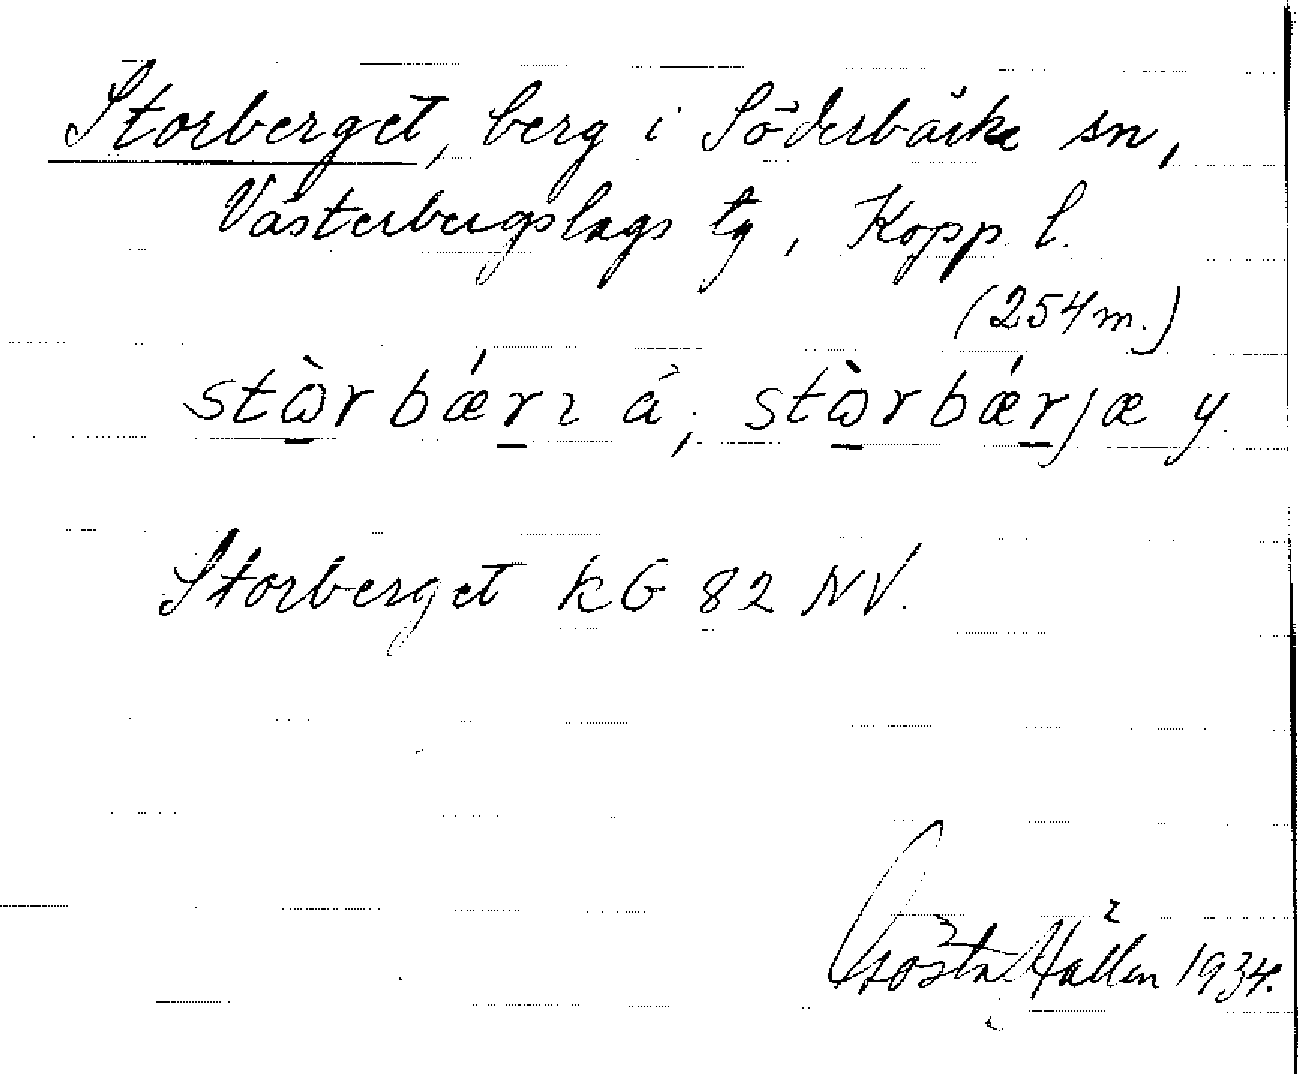 Storberget, berg i Söderbärke sn,
Västerbergslags tg, Kopp. l.
(254 m.)
stɷ̀r bǽrɿ á; stɷ̀rbǽrjæ y.
Storberget kG 82 NV.
Gösta Hallen 1934.